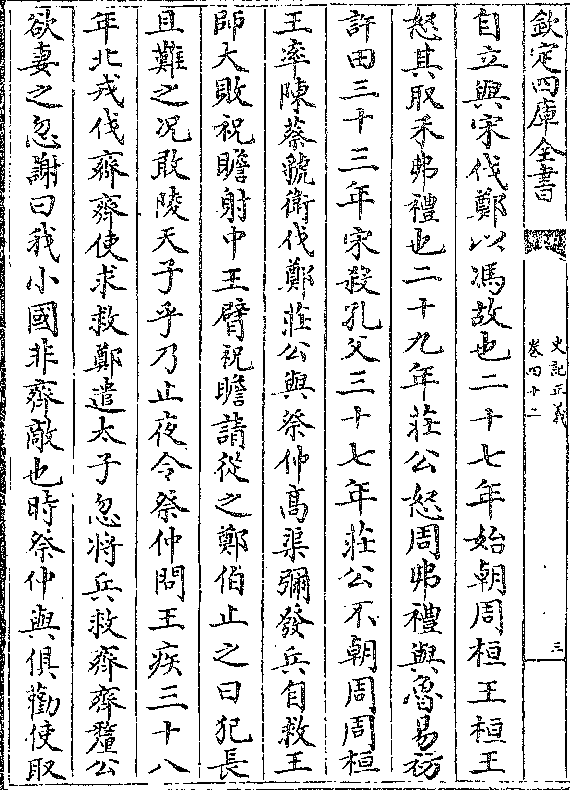 欽定四庫全書
史記正義
卷四十二
三
自立與宋伐鄭以馮故也二十七年始朝周桓王桓王
怒其取禾弗禮也二十九年莊公怒周弗禮與魯易祊
許田三十三年宋殺孔父三十七年莊公不朝周周桓
王率陳蔡虢衛伐鄭莊公與祭仲髙渠彌發兵自救王
師大敗祝瞻射中王臂祝瞻請從之鄭伯止之曰犯長
且難之况敢陵天子乎乃止夜令祭仲問王疾三十八
年北戎伐齊齊使求救鄭遣太子忽將兵救齊齊釐公
欲妻之忽謝曰我小國非齊敵也時祭仲與俱勸使取